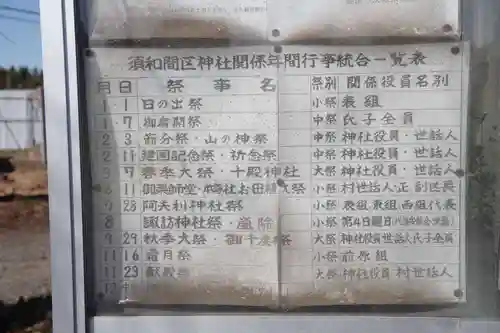 須和間区神社関係年間行事統合一覧表
月 日 祭 事 名 祭別 関係役員名別
1 1 日の出祭 小祭 表組
1 7 中祭 氏子全員
2 3 節分祭・山の神祭 中祭 神社役員・世話人
2 11 建国記念祭・祈念祭 中祭 神社役員・世話人
3 7 春季大祭・十殿神社 大祭 神社役員・世話人
11 小祭 村世話人正副区長
9 28 阿夫利神社祭 小祭 表組東組西組代表
8 諏訪神社祭 小祭 第4日曜日
9 29 秋季大祭 大祭 神社役員世話人氏子全員
11 16 霜月祭 小祭 前原組
11 23 大祭 神社役員 村世話人